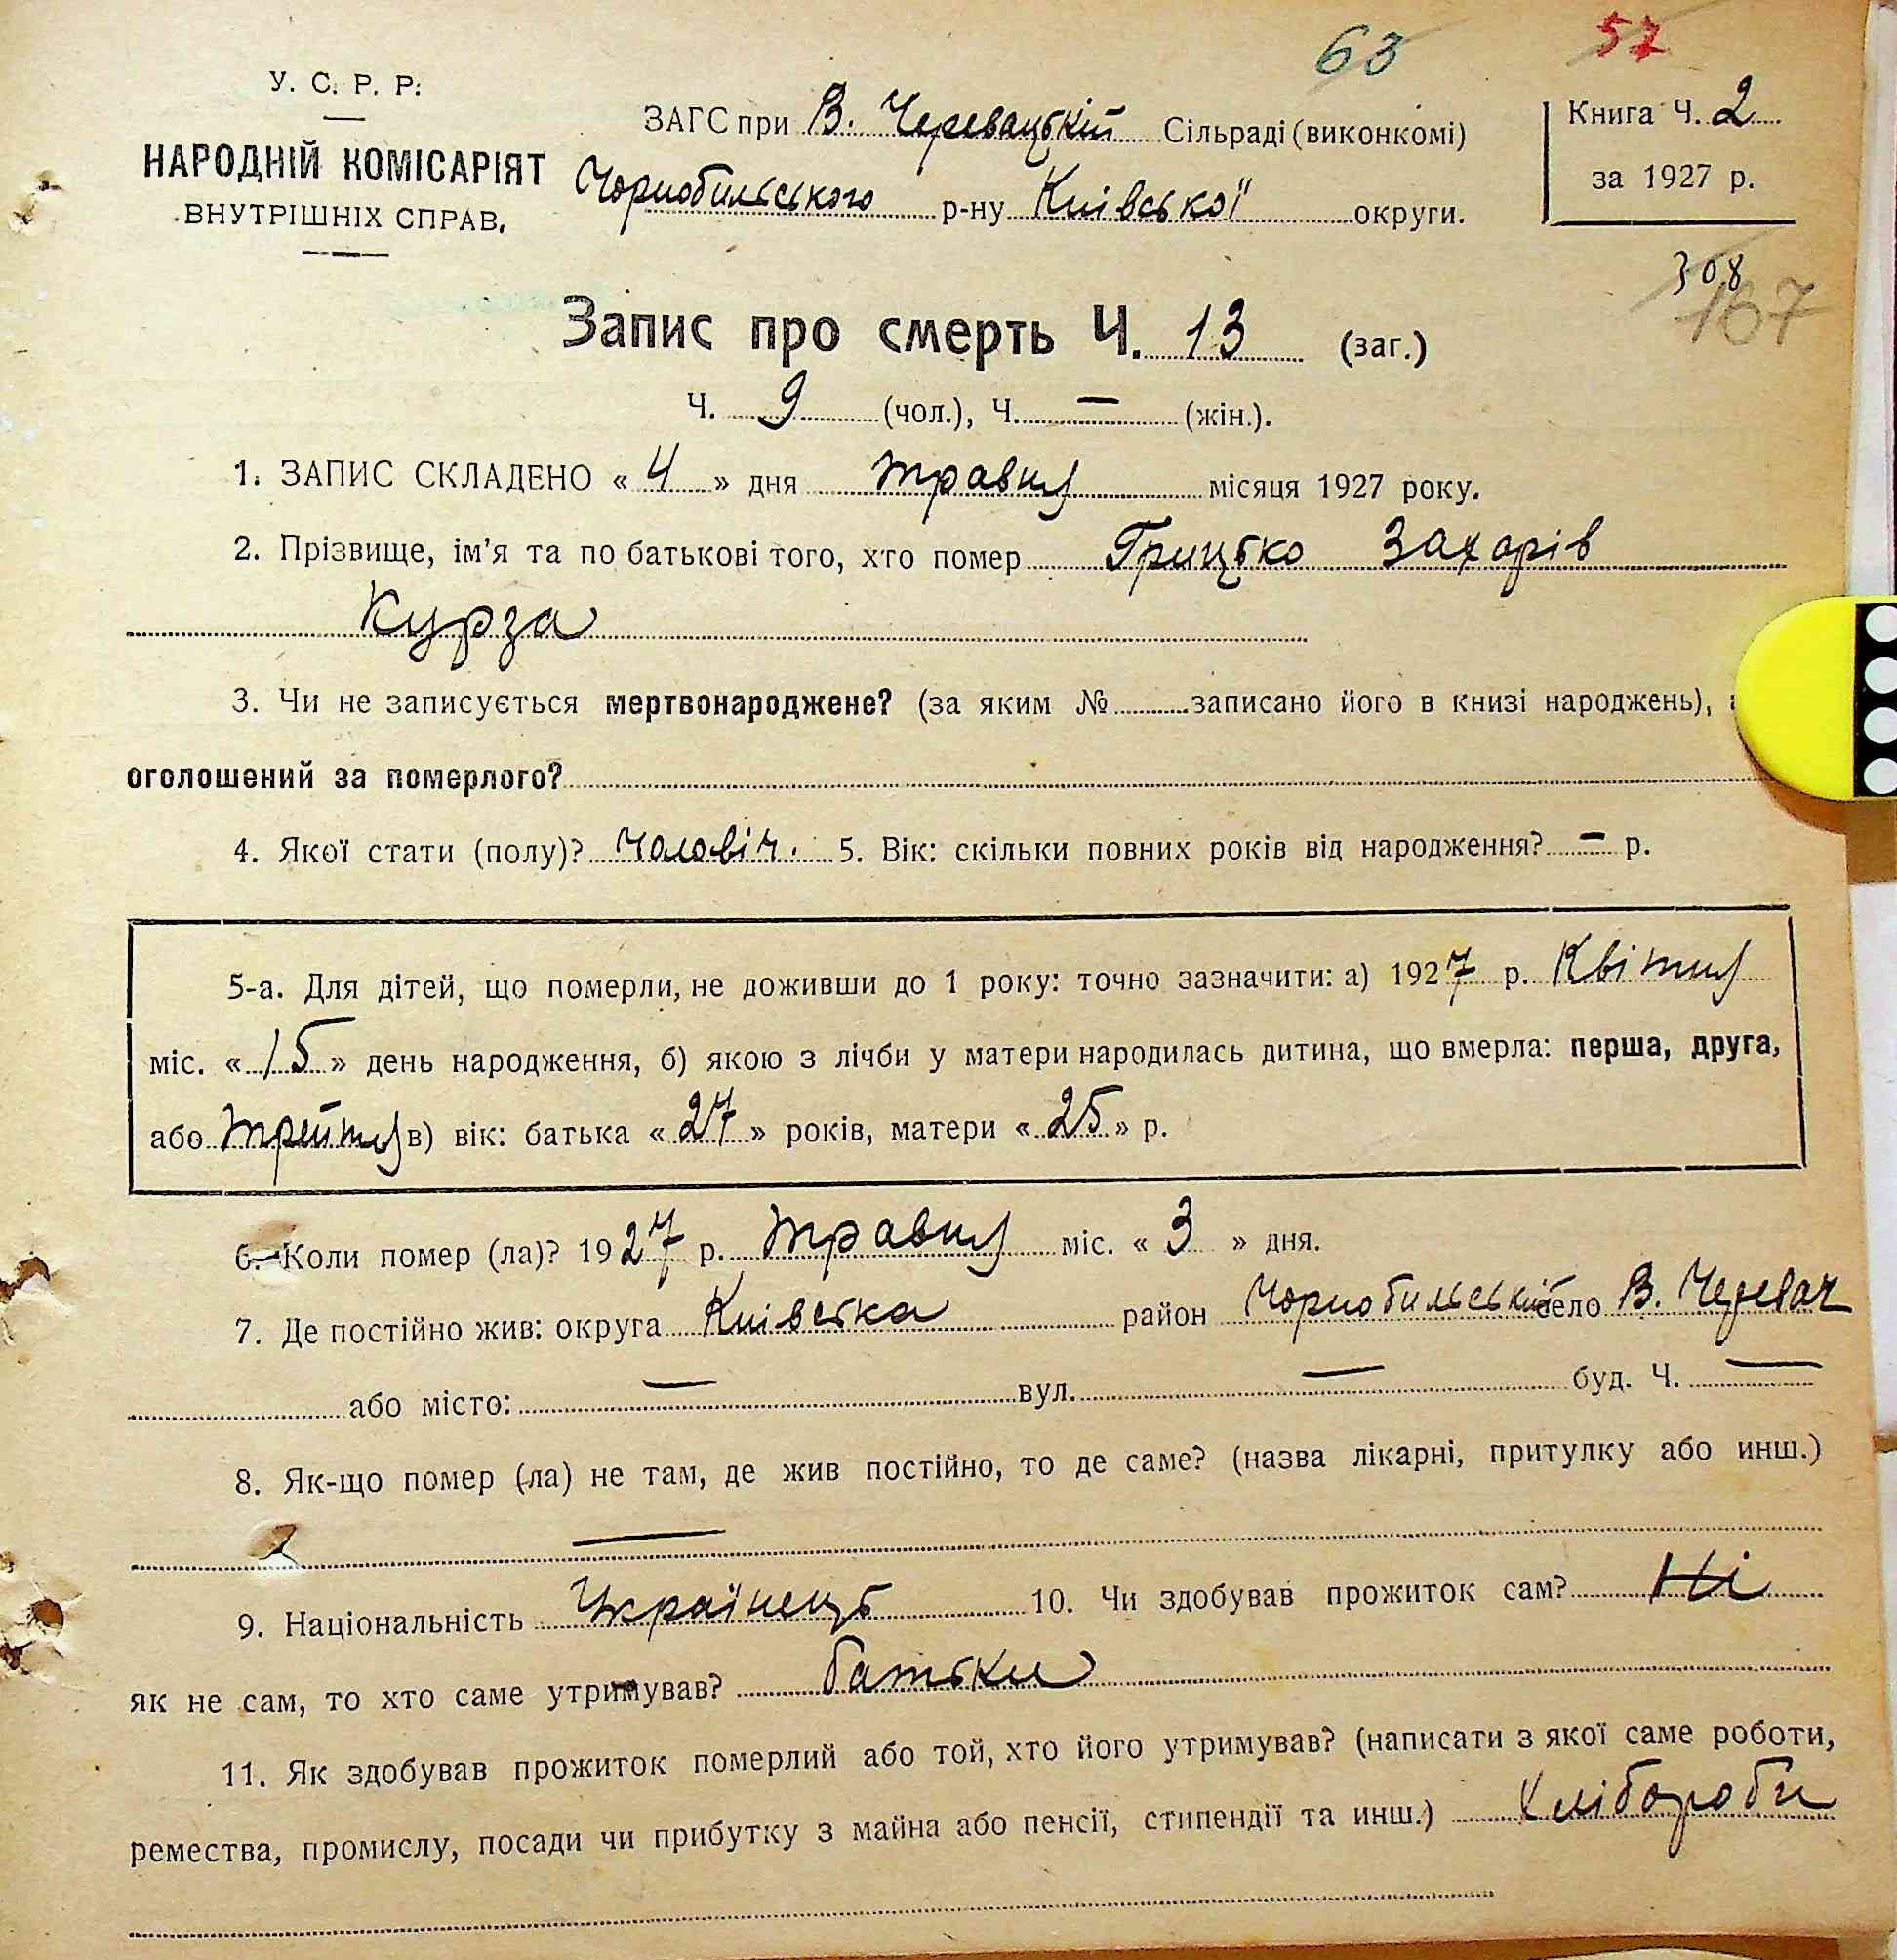 63 57
У. С. Р. Р.
НАРОДНІЙ КОМІСАРІЯТ
ВНУТРІШНІХ СПРАВ.
ЗАГС при В. Черевацькій Сільраді (виконкомі)
Чорнобильського р-ну Київської округи.
Книга Ч. 2
за 1927 р.
308
167
Запис про смерть Ч. 13 (заг.)
Ч. 9 (чол.), Ч. — (жін.).
1. ЗАПИС СКЛАДЕНО « 4 » дня травня місяця 1927 року.
2. Прізвище, ім’я та по батькові того, хто помер Грицько Захарів
Курза
3. Чи не записується мертвонароджене? (за яким № записано його в книзі народжень),
оголошений за померлого?
4. Якої стати (полу)? чоловіч. 5. Вік: скільки повних років від народження? — р.
5-а. Для дітей, що померли, не доживши до 1 року: точно зазначити: а) 1927 р. Квітня
міс. « 15 » день народження, б) якою з лічби у матери народилась дитина, що вмерла: перша, друга,
або третя в) вік: батька « 27 » років, матери « 25 » р.
6. Коли помер (ла)? 1927 р. травня міс. « 3 » дня.
7. Де постійно жив: округа Київська район Чорнобильський село В. Черевач
або місто: — вул. — буд. Ч. —
8. Як-що помер (-ла) не там, де жив постійно, то де саме? (назва лікарні, притулку або инш.)
—
9. Національність Українець 10. Чи здобував прожиток сам? Ні
як не сам, то хто саме утримував? батьки
11. Як здобував прожиток померлий або той, хто його утримував? (написати з якої саме роботи,
ремества, промислу, посади чи прибутку з майна або пенсії, стипендії та инш.) Хлібороби